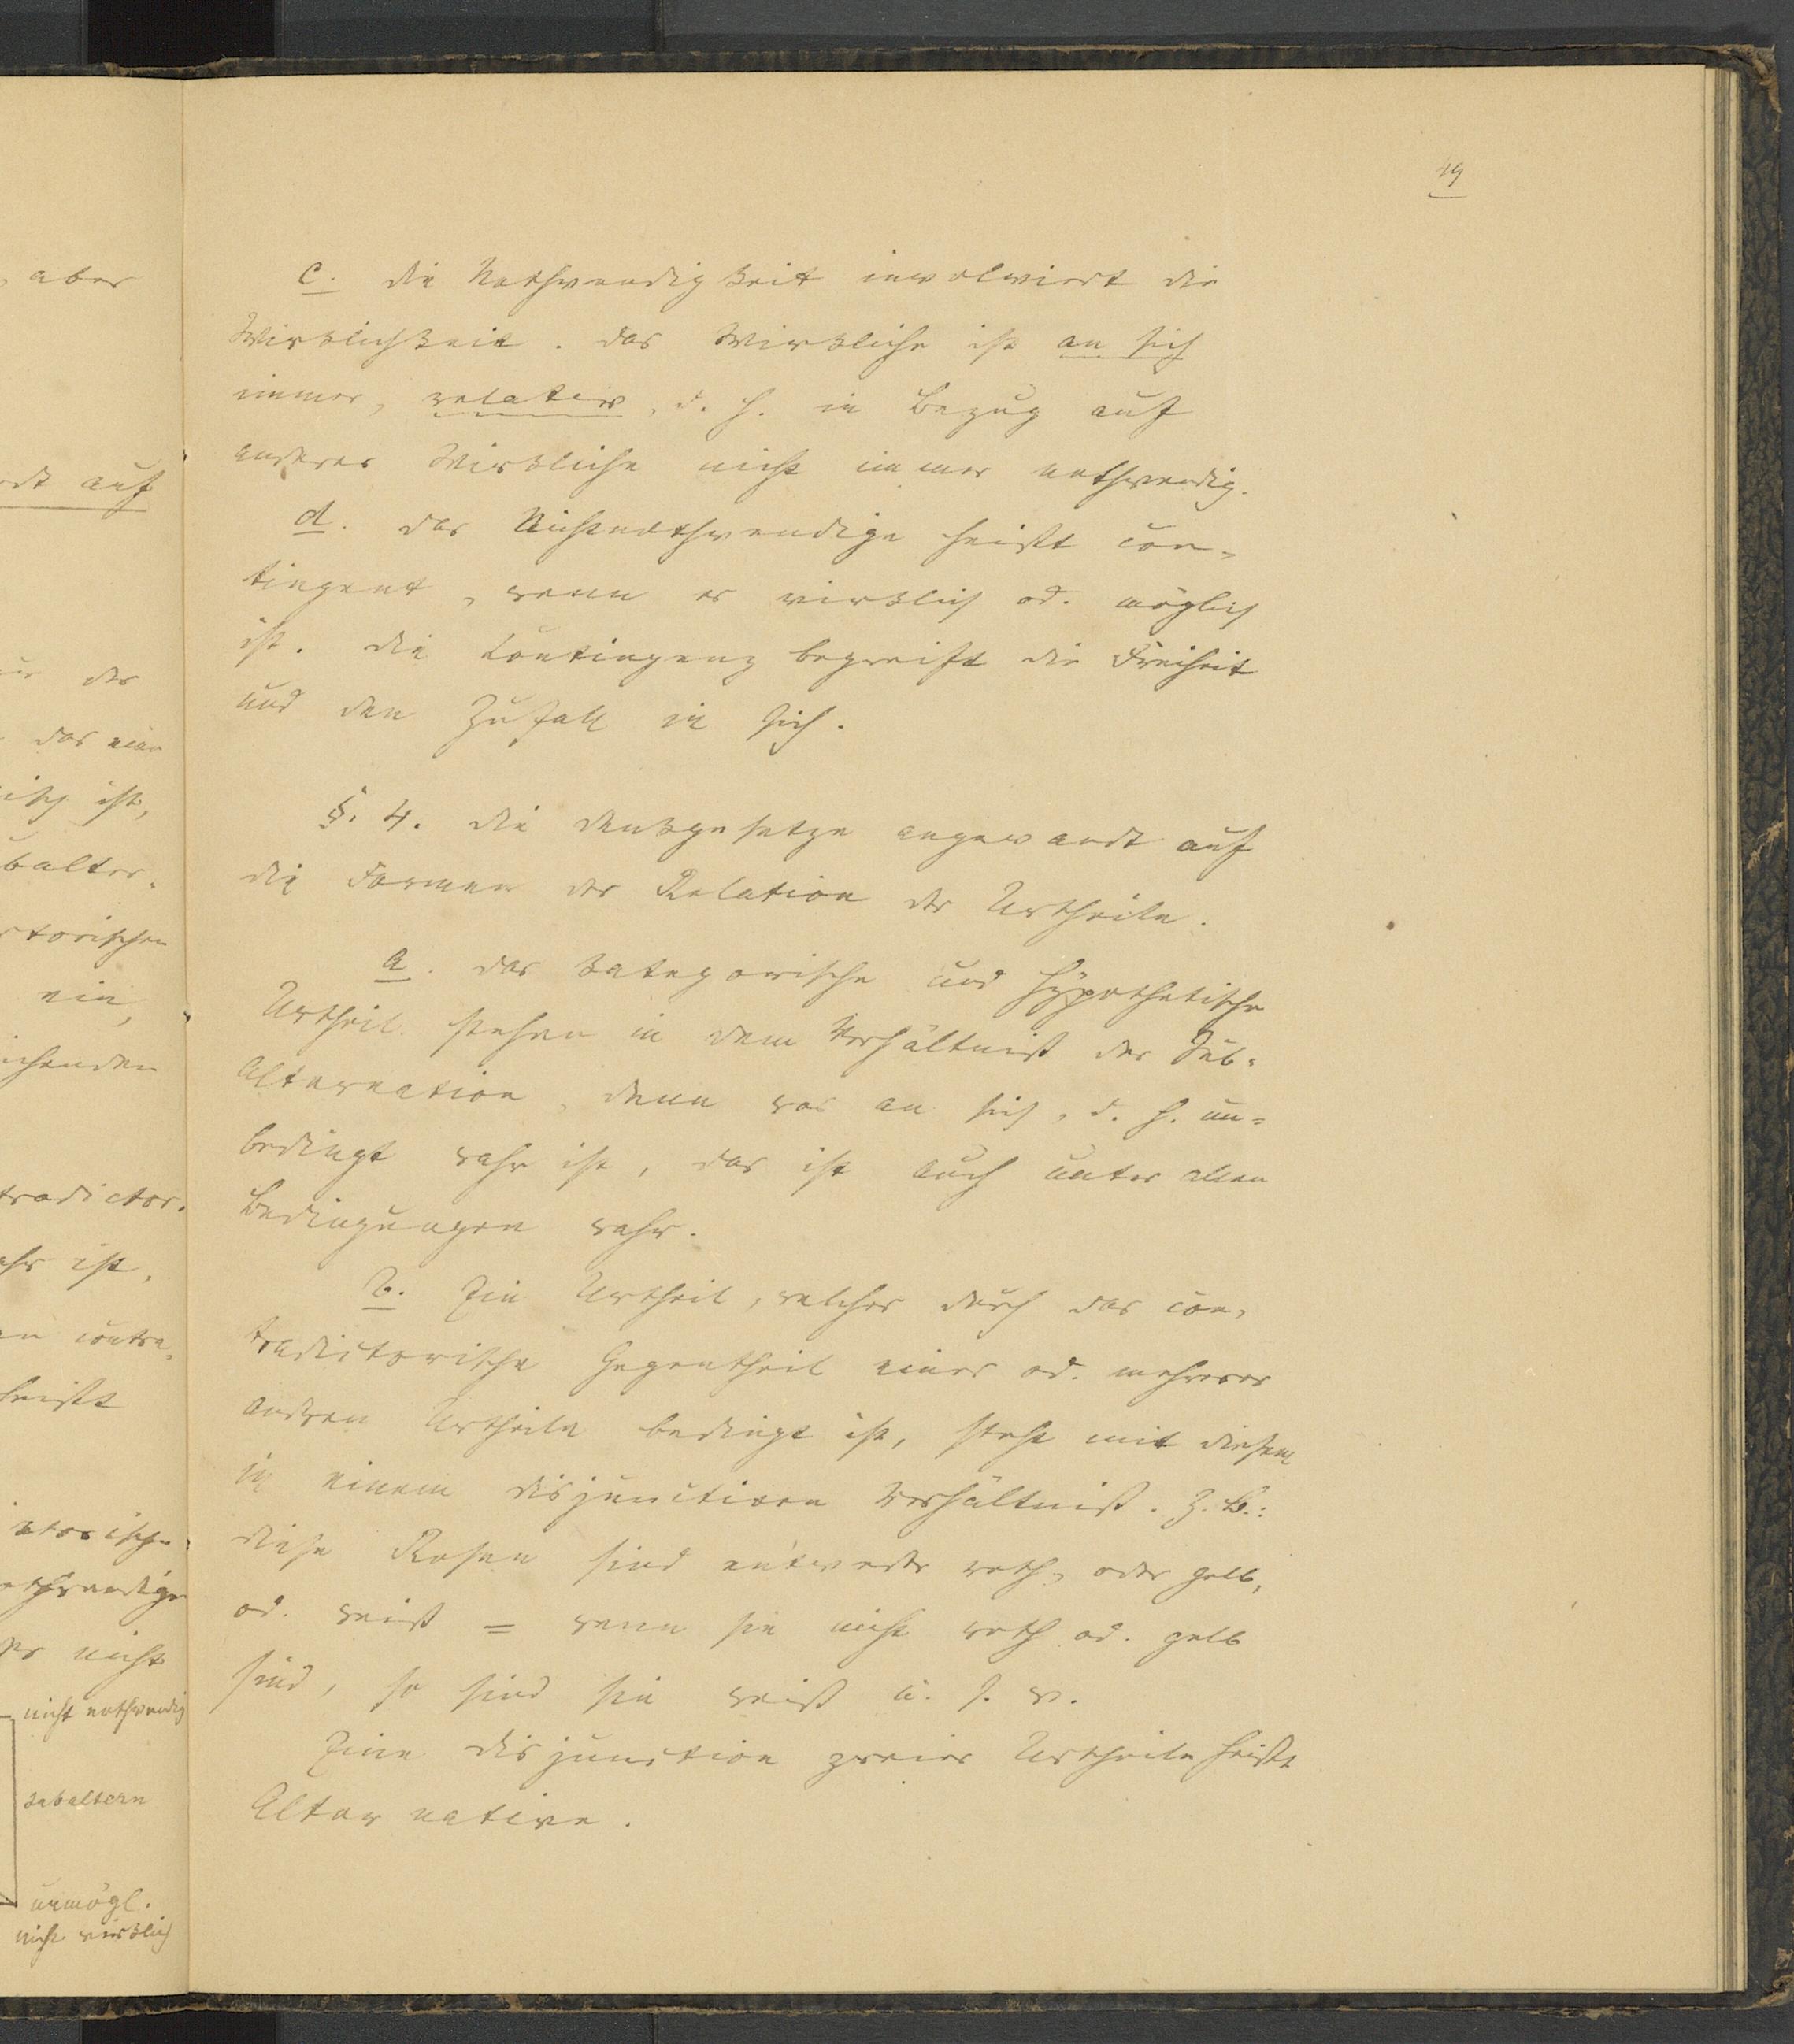 49
c. die Nothwendigkeit involvirt die
Wirklichkeit. das Wirkliche ist an sich
immer, relativ, d. h. in Bezug auf
anderes Wirkliche nicht immer nothwendig.
d. das Nichtnothwendige heißt con-
tingent, wenn es wirklich od. möglich
ist. die Contingenz begreift die Freiheit
und den Zufall in sich.
§. 4. die denkgesetze angewandt auf
die Formen der Relation der Urtheile.
a. das kategorische und hypothetische
Urtheil stehen in dem Verhältniß der Sub-
alternation, denn was an sich, d. h. un=
bedingt wahr ist, das ist auch unter allen
Bedingungen wahr.
b. Ein Urtheil, welches durch das con-
tradictorische Gegentheil eines od. mehrerer
andren Urtheile bedingt ist, steht mit diesem
in einem disjunctiven Verhältniß. Z. B.:
diese Rosen sind entweder roth, oder gelb,
od. weiß = wenn sie nicht roth od. gelb
sind, so sind sie weiß u. s. w.
Eine disjunction zweier Urtheile heißt
Alternative.
aber
auf
der
ist,
balter-
torischen
ein,
tradictor.
ist,
contra-
heißt
nicht
nicht nothwendig
subaltern
unmögl.
nicht wirklich